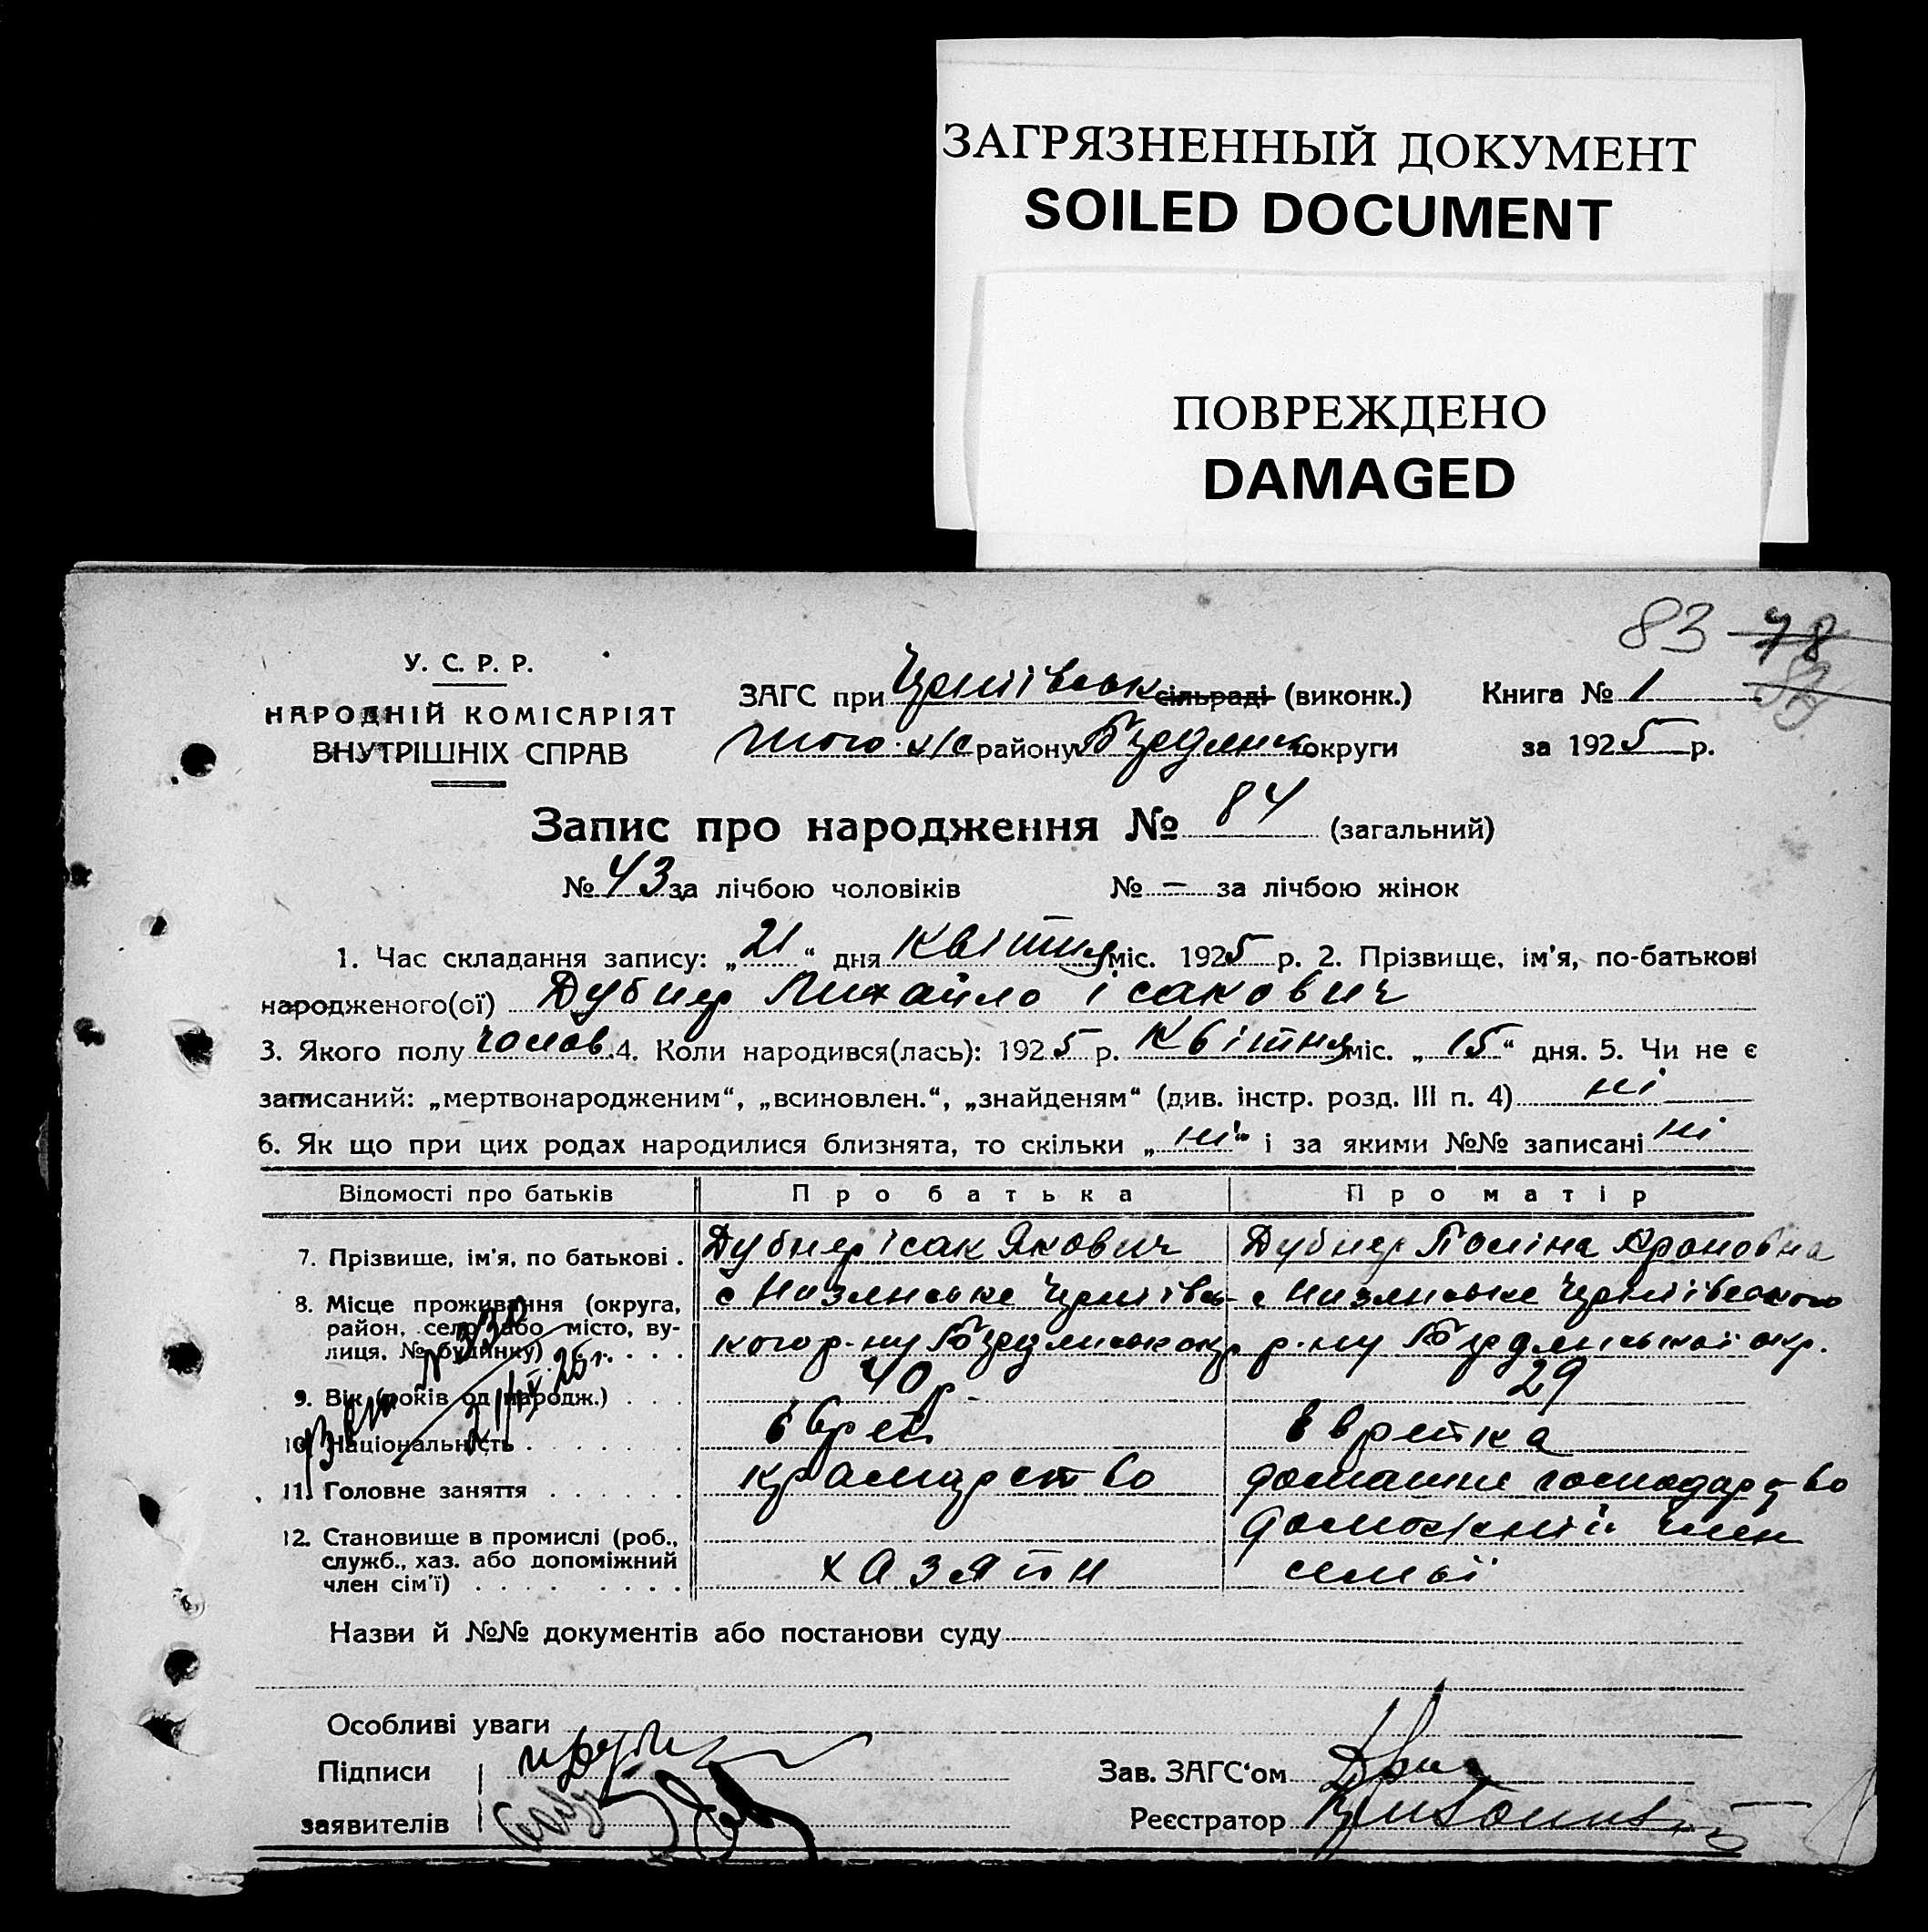 ЗАГРЯЗНЕННЫЙ ДОКУМЕНТ
SOILED DOCUMENT
ПОВРЕЖДЕНО
DAMAGED
83 78
У. С. Р. Р.
НАРОДНІЙ КОМІСАРІЯТ
ВНУТРІШНІХ СПРАВ
ЗАГС при сільраді (виконк.) Книга № 1
району округи за 1925 р.
Запис про народження № 84 (загальний)
№ 43 за лічбою чоловіків № — за лічбою жінок
1. Час складання запису: „21“ дня Квітня міс. 1925 р. 2. Прізвище, ім'я, по-батькові
народженого(ої) Дубнер Михайло Ісакович
3. Якого полу чолов. 4. Коли народився(лась): 1925 р. Квітня міс. „15“ дня. 5. Чи не є
записаний: „мертвонародженим“, „всиновлен.“, „знайденям“ (див. інстр. розд. III п. 4) ні
6. Як що при цих родах народилися близнята, то скільки „ні“ і за якими №№ записані ні
Відомості про батьків Про батька Про матір
7. Прізвище, ім'я, по батькові . Дубнер Ісак Якович Дубнер Поліна Ароновна
8. Місце проживання (округа,
район, село або місто, ву-
лиця, № будинку) р-ну р-ну окр.
9. Вік (років од народж.) . . . 40 р. 29
10. Національність . . . . . . Еврей Евретка
11. Головне заняття . . . . . . крамарство домашне господарство
12. Становище в промислі (роб.,
служб., хаз. або допоміжний
член сім'ї) . . . . . . . хазяїн член семьї
Назви й №№ документів або постанови суду
Особливі уваги
Підписи Зав. ЗАГС'ом
заявителів Реєстратор